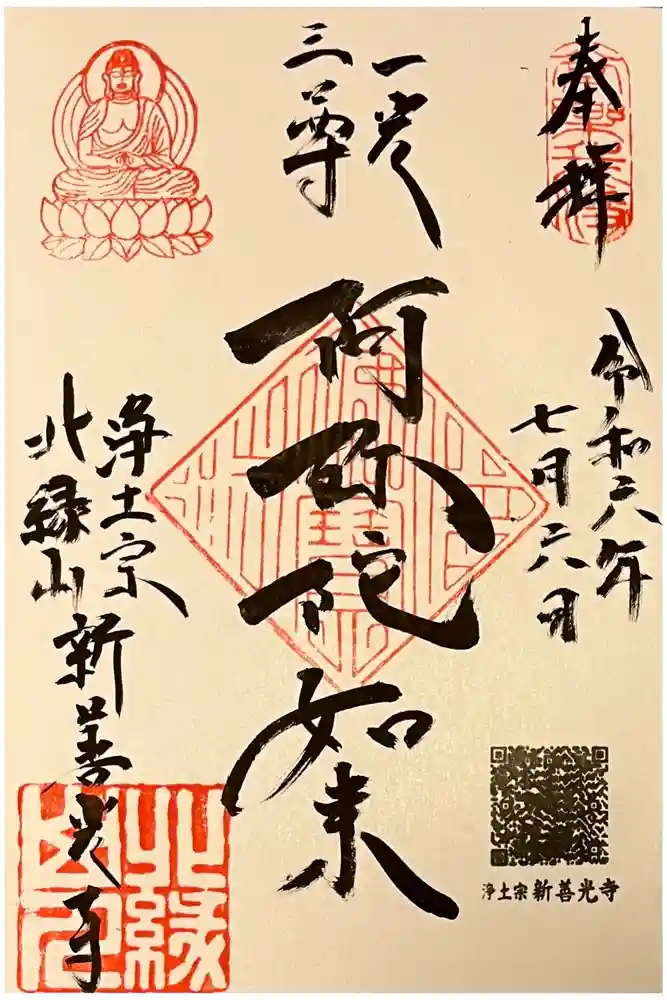 奉拝
令和六年
七月六日
一光
三尊
阿弥陀如来
浄土宗
北縁山新善光寺
北縁
浄土宗 新善光寺